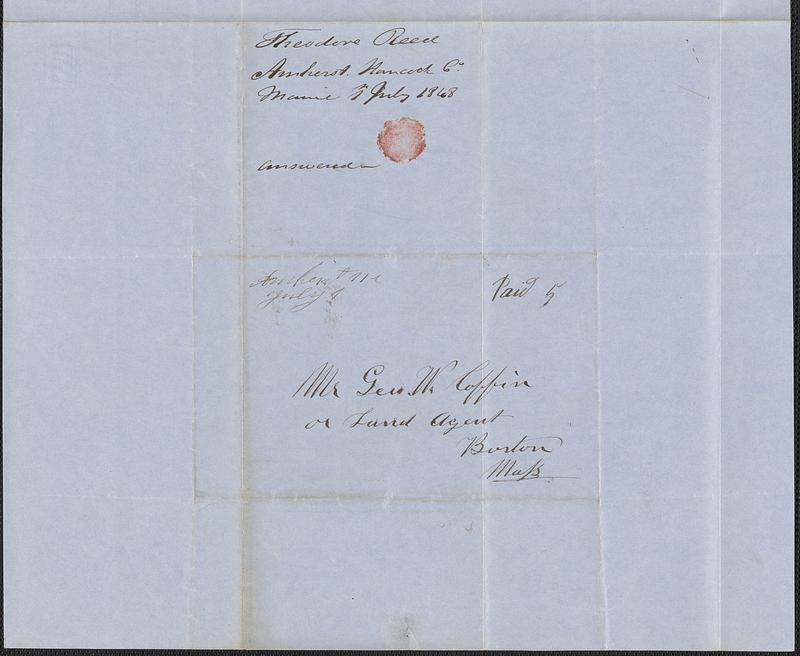 Theodore Reed
Amherst. Hancock Co.
Maine 5 July 1848
answered
Amherst Me
July
Paid 5
Mr Geo. W. Coffin
or Land Agent
Boston
Mass